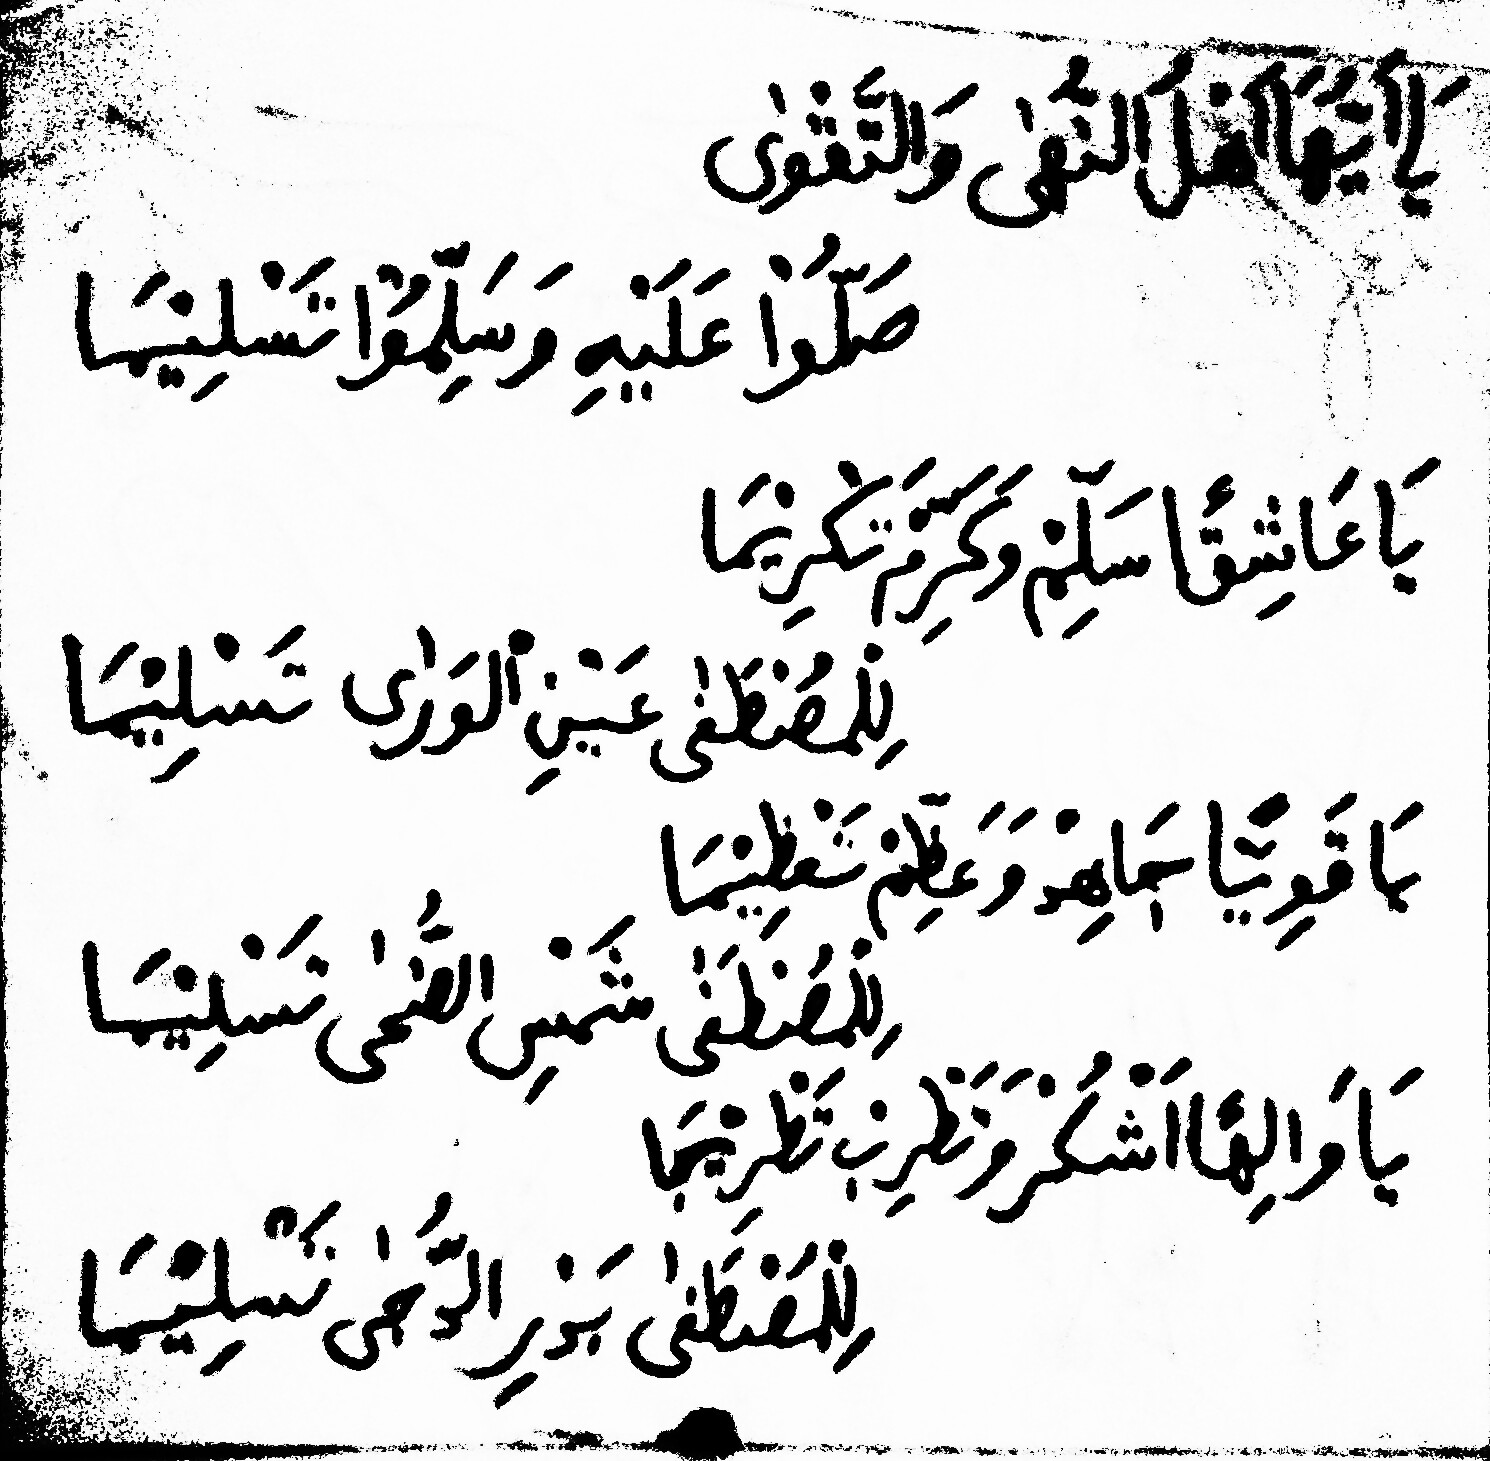 يَا أَيُّهَا أَهْلَ النُّهَى وَالتَّقْوٰى
صَلُّوْا عَلَيْهِ وَسَلِّمُوْا تَسْلِيْمَا
يَا عَاشِقًا سَلِّمْ وَكَرِّمْ تَكْرِيْمَا
لِلْمُصْطَفٰى عَيْنِ الْوَرٰى تَسْلِيْمَا
يَا قَوِيًّا جَاهِدْ وَعَظِّمْ تَعْظِيْمَا
لِلْمُصْطَفٰى شَمْسِ الضُّحٰى تَسْلِيْمَا
يَا وَالِهًا اَشْكُرْ وَنَظْرِبْ تَطْرِيْبَا
لِلْمُصْطَفٰى بَدْرِ الدُّجٰى تَسْلِيْمَا